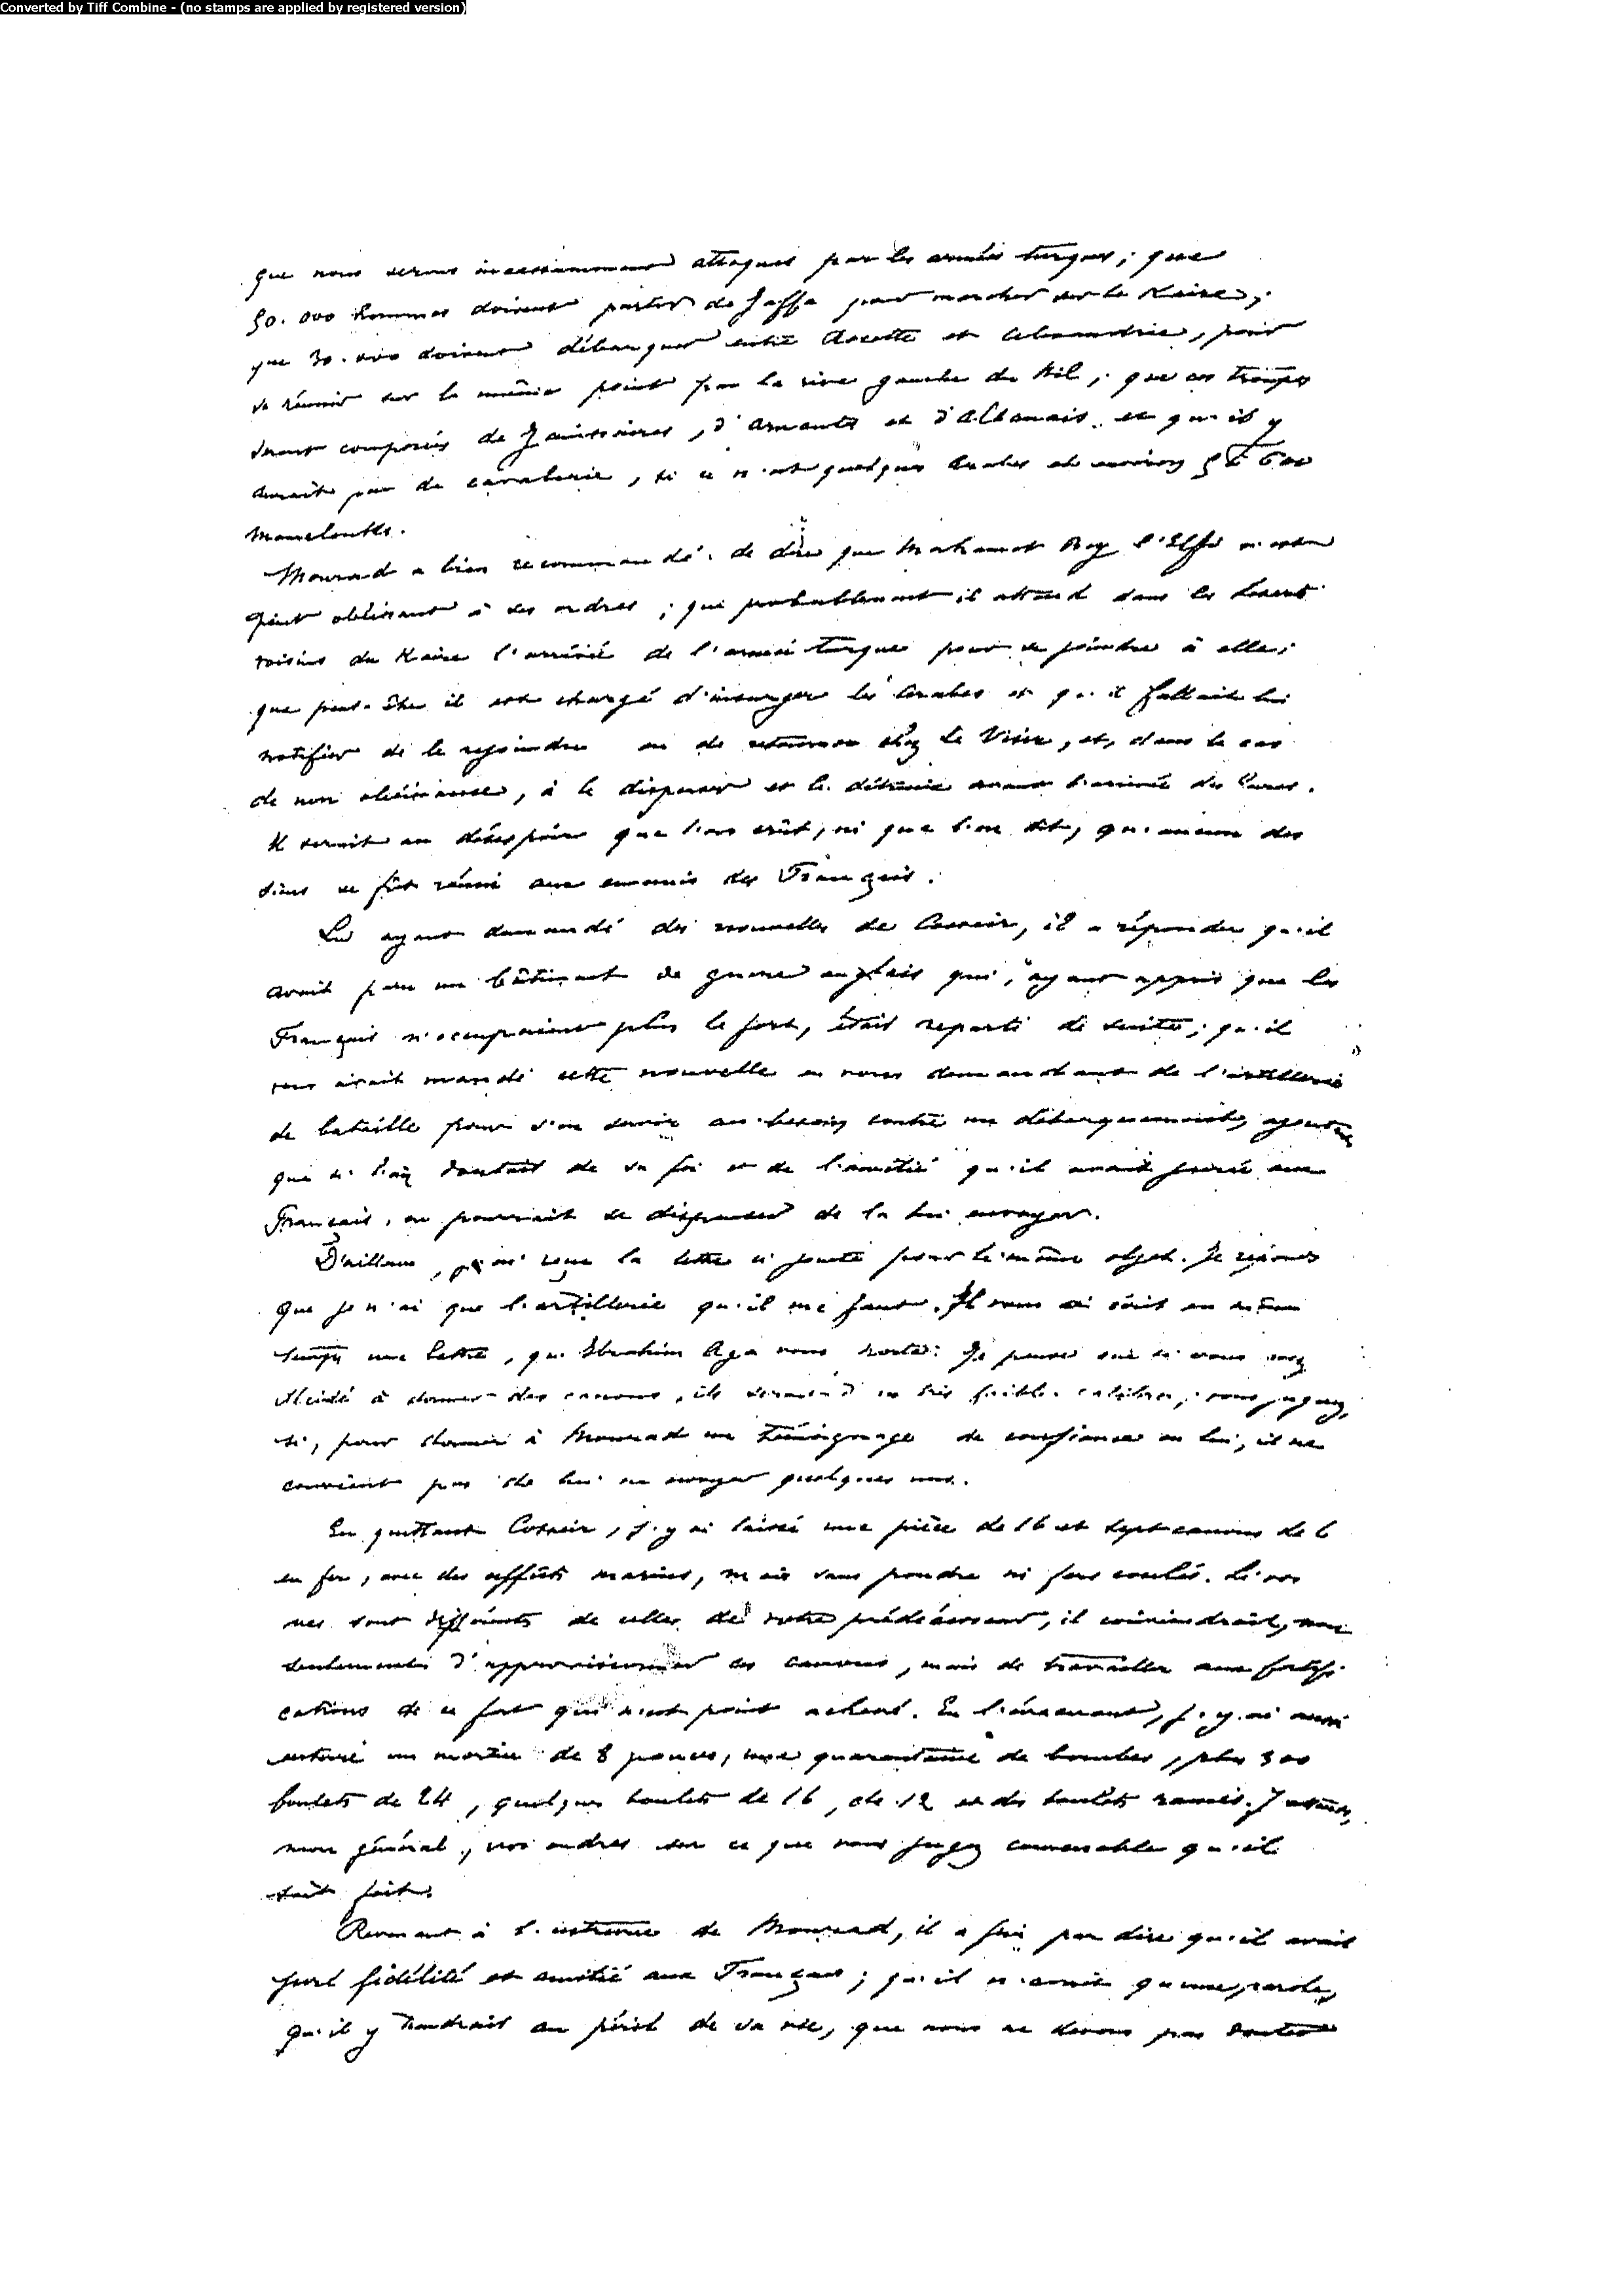 Converted by Tiff Combine - (no stamps are applied by registered version)
que nous serons incessamment attaqués par les armées turques ; que
50.000 hommes doivent partir de Jaffa pour marcher sur le Kaire ;
que 30.000 doivent débarquer entre Rosette et Alexandrie, pour
se réunir sur le même point par la rive gauche du Nil ; que ces troupes
seront composées de Janissaires, d'Arnautes et d'Albanais et qu'il y
aurait peu de cavalerie, si ce n'est quelques Arabes et environ 5 à 600
Mamelouks.
Mourad a bien recommandé de dire que Mohamet Bey l'Elfi n'était
point obéissant à ses ordres ; que probablement il attend dans les déserts
voisins du Kaire l'arrivée de l'armée turque pour se joindre à elle ;
que peut-être il est chargé d'insurger les Arabes et qu'il fallait lui
notifier de le rejoindre ou de retourner chez le Visir, et, dans le cas
de non obéissance, à le disperser et le détruire avant l'arrivée des Turcs.
Il serait au désespoir que l'on crût, ni que l'on dit, qu'aucun des
siens se fût réuni aux ennemis des Français.
Lui ayant demandé des nouvelles de Cosseir, il a répondu qu'il
avait paru un bâtiment de guerre anglais qui, ayant appris que les
Français n'occupaient plus le fort, était reparti de suite ; qu'il
vous avait mandé cette nouvelle en vous demandant de l'artillerie
de bataille pour s'en servir au besoin contre un débarquement, ajoutant
que si l'on doutait de sa foi et de l'amitié qu'il avait jurée aux
Français, on pourrait se dispenser de la lui envoyer.
D'ailleurs, j'ai reçu la lettre ci jointe pour le même objet. Je réponds
que je n'ai que l'artillerie qu'il me faut. Il vous a écrit en même
temps une lettre, que Ibrahim Aga vous porte. Je pense que si vous vous
décidé à donner des canons, ils seraient de très faible calibre ; vous jugerez
si, pour donner à Mourad un témoignage de confiance en lui, il ne
convient pas de lui en envoyer quelques uns.
En quittant Cosseir, j'y ai laissé une pièce de 16 et sept canons de 6
en fer, avec des affûts marins, mais sans poudre ni fers coulés. Si vos
vues sont différentes de celles de votre prédécesseur, il conviendrait, non
seulement d'approvisionner ces canons, mais de travailler aux fortifi-
cations de ce fort qui n'est point achevé. En l'évacuant, j'y ai aussi
enterré un mortier de 8 pouces, une quarantaine de bombes, plus 300
boulets de 24, quelques boulets de 16, de 12 et des boulets ramés. J'attends,
mon général, vos ordres sur ce que vous jugez convenable qu'il
soit fait.
Revenant à l'entrevue de Mourad, il a fini par dire qu'il avait
juré fidélité et amitié aux Français ; qu'il n'avait qu'une parole,
qu'il y tiendrait au péril de sa vie, que nous ne devons pas douter